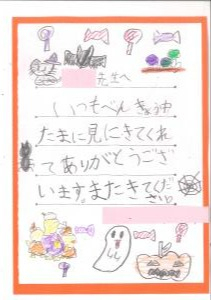 先生へ
いつもべんきょうゆ
たまに見にきてくれ
てありがとうござ
います。またきてくだ
さい。